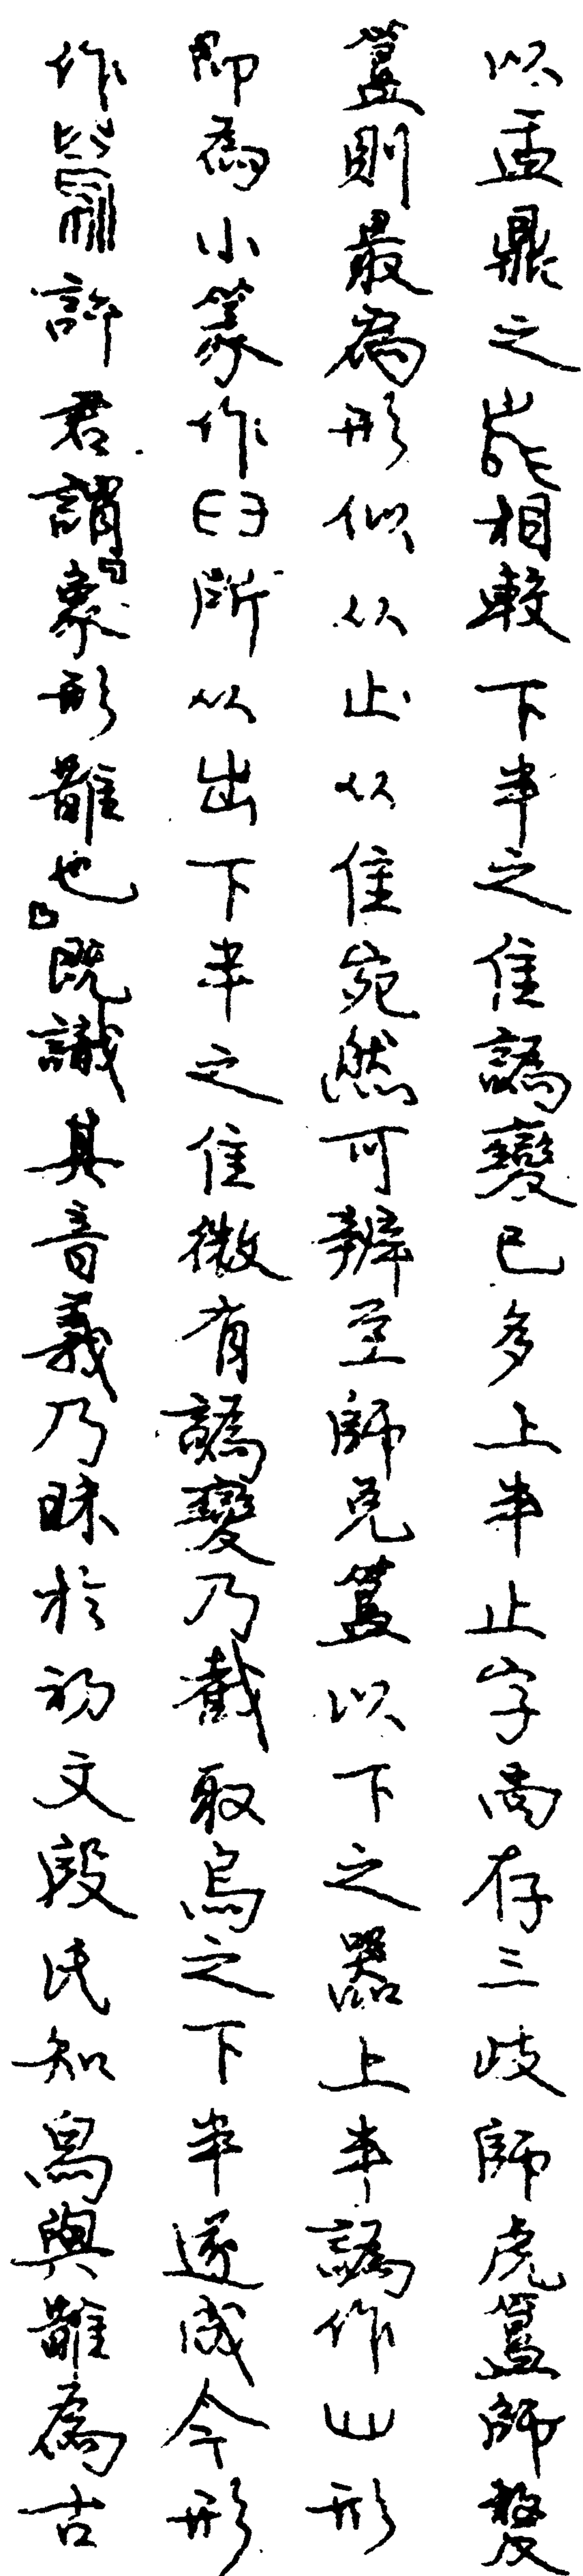 以盂鼎之相較下半之隹譌變已多上半止字尚存三歧師虎簋師㝨
簋則最為形似从止从隹宛然可辨至師兌簋以下之器上半譌作山形
即為小篆作臼所从出下半之隹微有譌變乃截取鳥之下半遂成今形
作許君謂象形䧿也既識其音義乃昧於初文段氏知舄與䧿為古